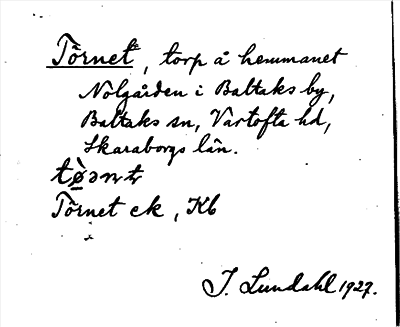 Törnet, torp å hemmanet
Nolgården i Baltaks by,
Baltaks sn, Vartofta hd,
Skaraborgs län.
Törnet ek, Kb
I. Lundahl 1927.